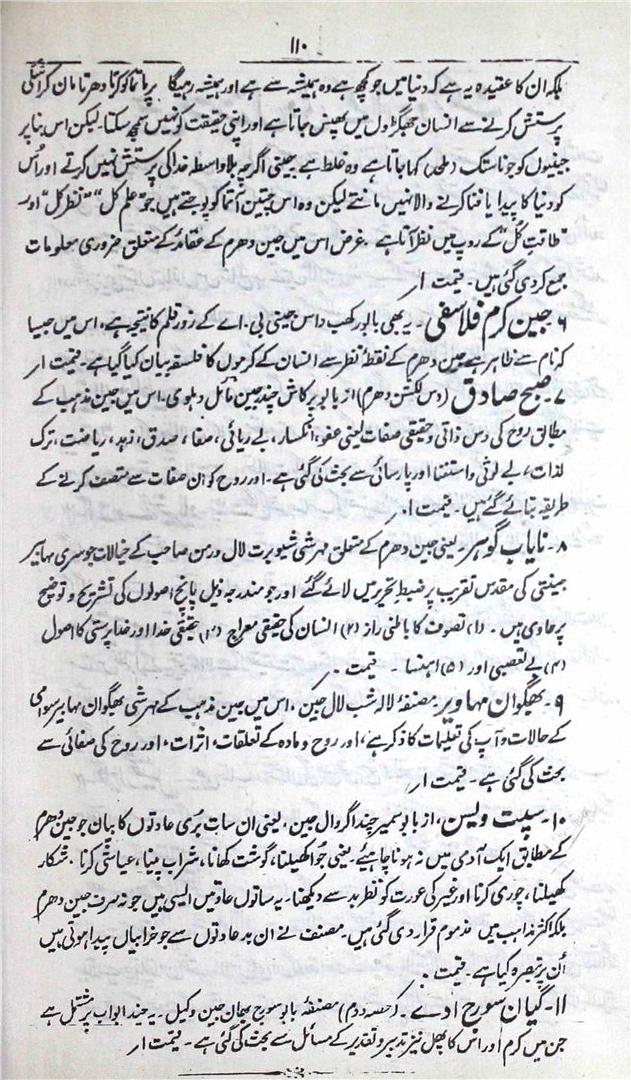 ۱۱۰
بلکہ ان کا عقیدہ یہ ہے کہ دنیا میں جو کچھ ہے وہ ہمیشہ سے ہے اور ہمیشہ رہیگا پرماتما کو کرتا دھرتا مان کر اسکی
پرستش کرنے سے انسان جھگڑوں میں پھنس جاتا ہے اور اپنی حقیقت کو نہیں سمجھ سکتا۔ لیکن اس بنا پر
جینیوں کو جو ناستک (ملحد) کہا جاتا ہے وہ غلط ہے یعنی اگرچہ بلا واسطہ خدا کی پرستش نہیں کرتے اور اُس
کو دنیا کا پیدا یا فنا کرنے والا نہیں مانتے لیکن وہ اس آتما کو پوجتے ہیں جو "علم کل" "نظر کل" اور
"طاقت کُل" کے روپ میں نظر آتا ہے۔ غرض اس میں جین دھرم کے عقائد کے متعلق ضروری معلومات
جمع کر دی گئی ہیں۔ قیمت ۱ر
۶ جین کرم فلاسفی۔ یہ بھی بابو رکھب داس جینی بی۔ اے کے زور قلم کا نتیجہ ہے۔ اس میں جیسا
کہ نام سے ظاہر ہے جین دھرم کے نقطۂ نظر سے انسان کے کرموں کا فلسفہ بیان کیا گیا ہے۔ قیمت ۱ر
۷۔ صبح صادق (دس لکشن دھرم) از بابو پرکاش چند جین مائل دہلوی۔ اس میں جین مذہب کے
مطابق روح کی دس ذاتی و حقیقی صفات یعنی عفو، انکسار، بے ریائی، صفا، صدق، زہد، ریاضت، ترک
لذات، بے لوثی و استغنا اور پارسائی سے بحث کی گئی ہے۔ اور روح کو ان صفات سے متصف کرنے کے
طریقہ بتائے گئے ہیں۔ قیمت ۱ر
۸۔ نایاب گوہر۔ یعنی جین دھرم کے متعلق مہرشی شیوبرت لال ورمن صاحب کے خیالات جو سری مہابیر
جینتی کی مقدس تقریب پر ضبط تحریر میں لائے گئے اور جو مندرجہ ذیل پانچ اصولوں کی تشریح و توضیح
پر حاوی ہیں۔ (۱) تصوف کا باطنی راز (۲) انسان کی حقیقی معراج (۳) حقیقی خدا اور خدا پرستی کا اصول
(۴) بے تعصبی اور (۵) اہنسا۔ قیمت
۹۔ بھگوان مہاویر۔ مصنفۂ لالہ شب لال جین۔ اس میں جین مذہب کے مہرشی بھگوان مہابیر سوامی
کے حالات و آپ کی تعلیمات کا ذکر ہے، اور روح و مادہ کے تعلقات، اثرات، اور روح کی صفائی سے
بحث کی گئی ہے۔ قیمت ۱ر
۱۰۔ سپت ویسن، از بابو سمیر چند اگروال جین۔ یعنی ان سات بُری عادتوں کا بیان جو جین دھرم
کے مطابق ایک آدمی میں نہ ہونا چاہیئے۔ یعنی جُوا کھیلنا، گوشت کھانا، شراب پینا، عیاشی کرنا۔ شکار
کھیلنا، چوری کرنا اور غیر کی عورت کو نظر بد سے دیکھنا۔ یہ ساتوں عادتیں ایسی ہیں جو نہ صرف جین دھرم
بلکہ اکثر مذاہب میں مذموم قرار دی گئی ہیں۔ مصنف نے ان بد عادتوں سے جو خرابیاں پیدا ہوتی ہیں
اُن پر تبصرہ کیا ہے۔ قیمت
۱۱۔ گیان سورج اُدے۔ (حصہ دوم) مصنفۂ بابو سورج بھان جین وکیل۔ یہ چند ابواب پر مشتمل ہے
جن میں کرم اور اس کا پھل نیز تدبیر و تقدیر کے مسائل سے بحث کی گئی ہے۔ قیمت ۱ر